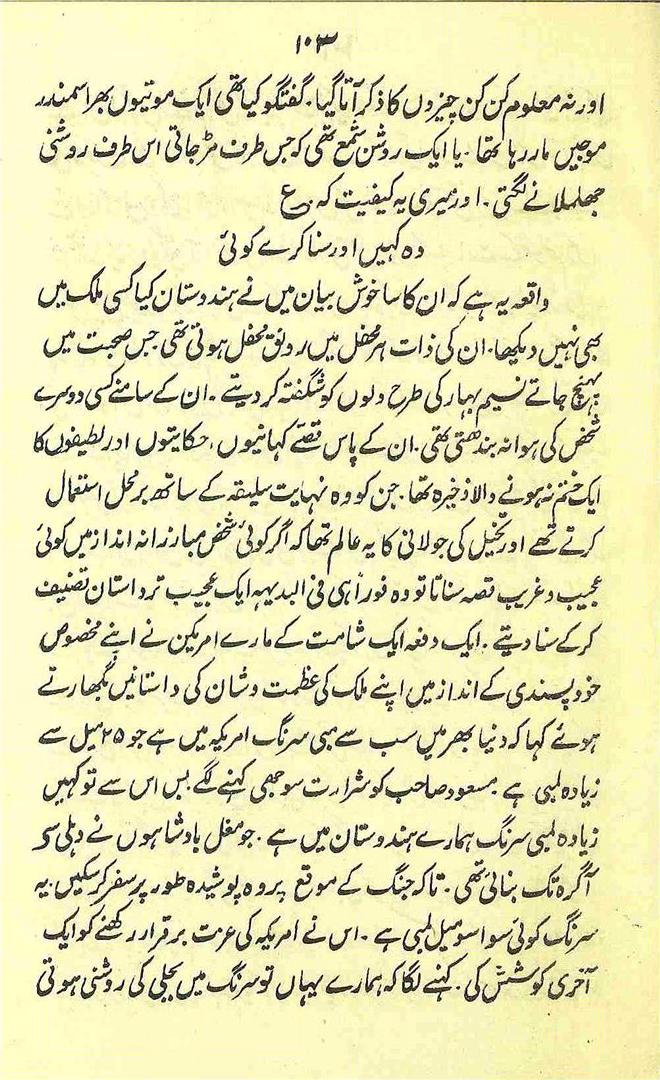 ۱۰۳
اور نہ معلوم کن کن چیزوں کا ذکر آتا گیا۔ گفتگو کیا تھی ایک موتیوں بھرا سمندر
موجیں مار رہا تھا۔ یا ایک روشن شمع تھی کہ جس طرف مڑ جاتی اس طرف روشنی
جھلملانے لگتی۔ اور میری یہ کیفیت کہ۔ ع
وہ کہیں اور سنا کرے کوئی
واقعہ یہ ہے کہ ان کا سا خوش بیان میں نے ہندوستان کیا کسی ملک میں
بھی نہیں دیکھا۔ ان کی ذات ہر محفل میں رونق محفل ہوتی تھی جس صحبت میں
پہنچ جاتے نسیم بہار کی طرح دلوں کو شگفتہ کر دیتے۔ ان کے سامنے کسی دوسرے
شخص کی ہوا نہ بندھتی تھی۔ ان کے پاس قصّے کہانیوں، حکایتوں اور لطیفوں کا
ایک ختم نہ ہونے والا ذخیرہ تھا۔ جن کو وہ نہایت سلیقہ کے ساتھ برمحل استعمال
کرتے تھے اور تخیل کی جولانی کا یہ عالم تھا کہ اگر کوئی شخص مبارزانہ انداز میں کوئی
عجیب و غریب قصہ سناتا تو وہ فوراً ہی فی البدیہہ ایک عجیب تر داستان تصنیف
کر کے سنا دیتے۔ ایک دفعہ ایک شامت کے مارے امریکین نے اپنے مخصوص
خود پسندی کے انداز میں اپنے ملک کی عظمت و شان کی داستانیں بگھارتے
ہوئے کہا کہ دنیا بھر میں سب سے لمبی سرنگ امریکہ میں ہے جو ۲۵ میل سے
زیادہ لمبی ہے۔ مسعود صاحب کو شرارت سوجھی کہنے لگے بس اس سے تو کہیں
زیادہ لمبی سرنگ ہمارے ہندوستان میں ہے۔ جو مغل بادشاہوں نے دہلی سے
آگرہ تک بنائی تھی۔ تاکہ جنگ کے موقع پر وہ پوشیدہ طور پر سفر کر سکیں۔ یہ
سرنگ کوئی سوا سو میل لمبی ہے۔ اس نے امریکہ کی عزت برقرار رکھنے کو ایک
آخری کوشش کی۔ کہنے لگا کہ ہمارے یہاں تو سرنگ میں بجلی کی روشنی ہوتی